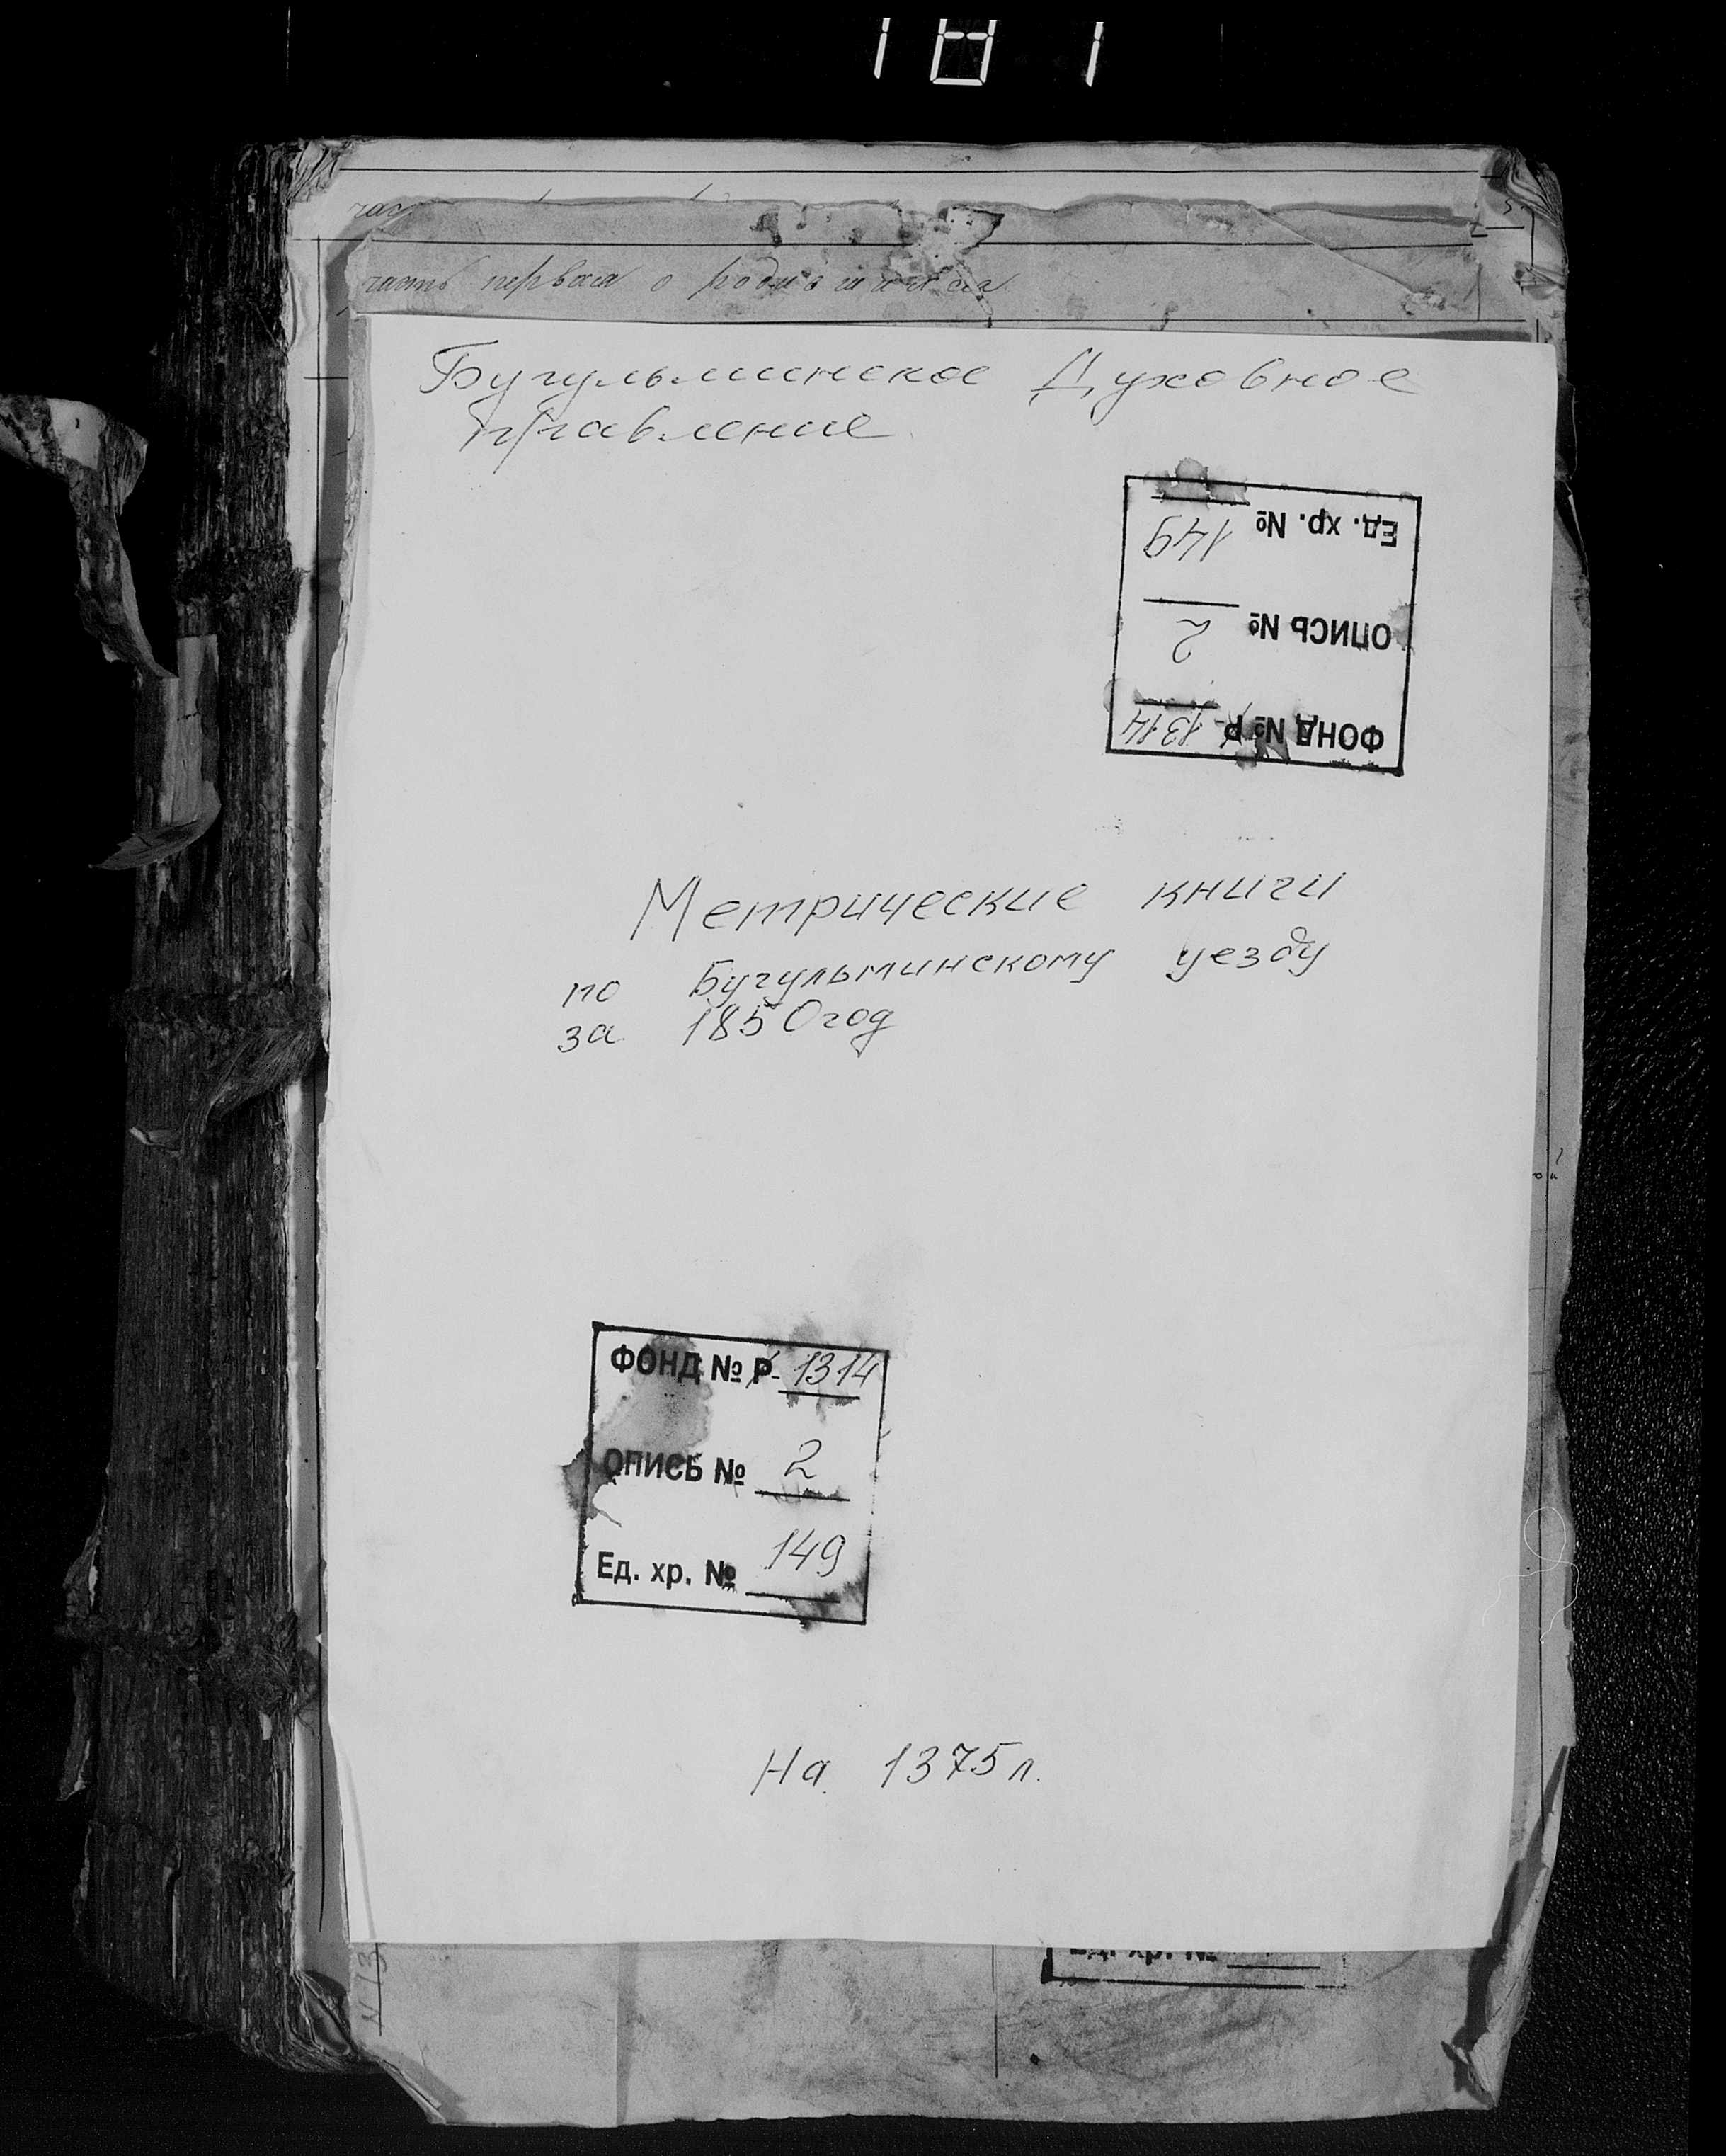 часть первая о родившихся
Бугульминское Духовное
правление
Ед. хр. № 149
ОПИСЬ № 2
ФОНД № Р-1314
Метрические книги
по Бугульминскому уезду
за 1850 год
ФОНД № Р-1314
ОПИСЬ № 2
Ед. хр. № 149
На 1375 л.
Ед. хр. №